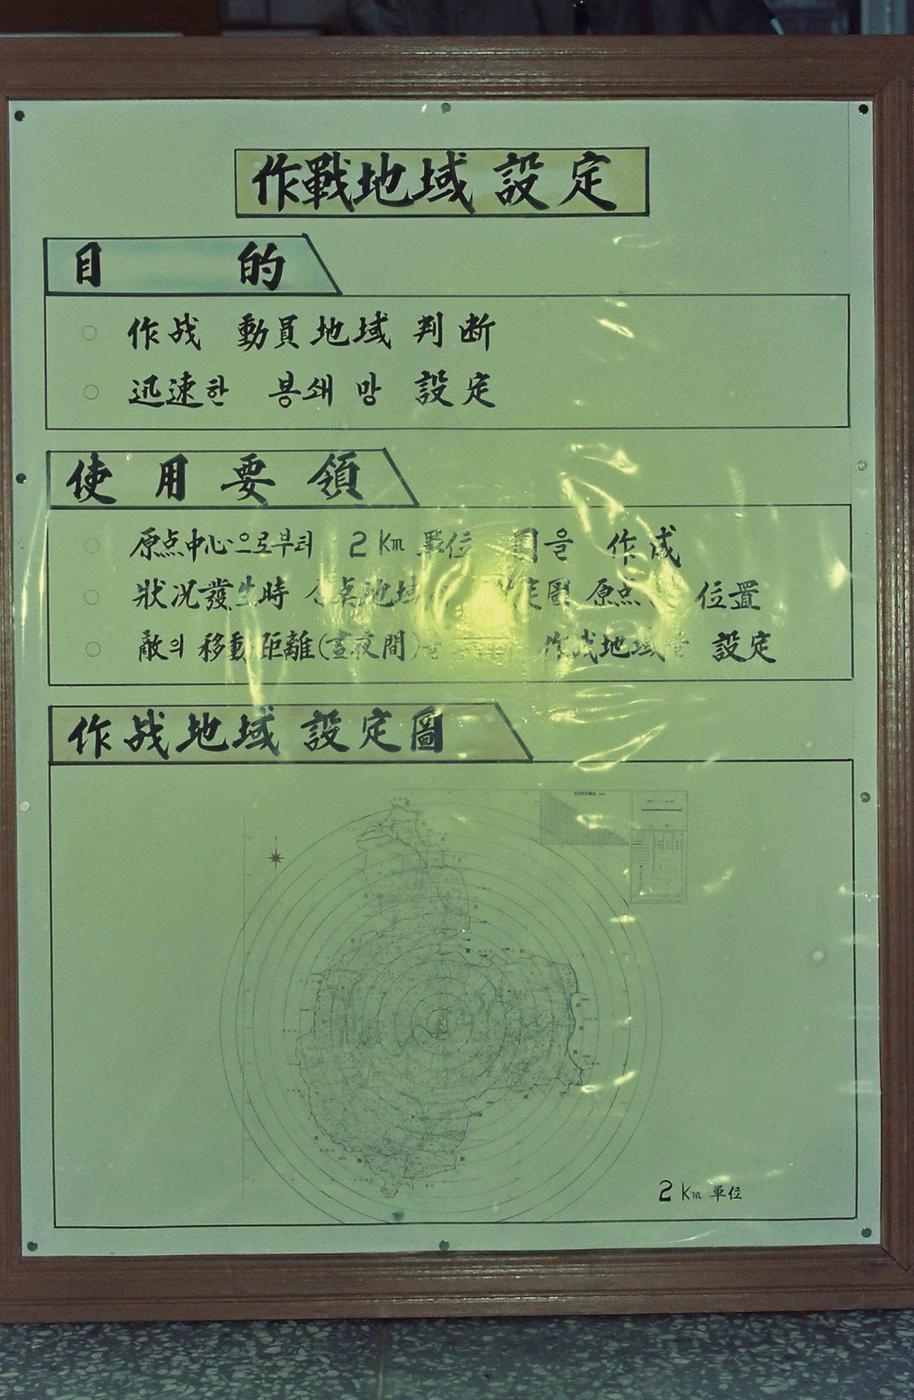 作戰地域 設定
目 的
作战 動員地域 判断
迅速한 봉쇄 망 設定
使用要領
原点中心으로부터 2 Km 單位 을 作成
狀況發生時 地域 原点 位置
敵의 移動距離(晝夜間) 作战地域을 設定
作战地域 設定圖
2 Km 單位